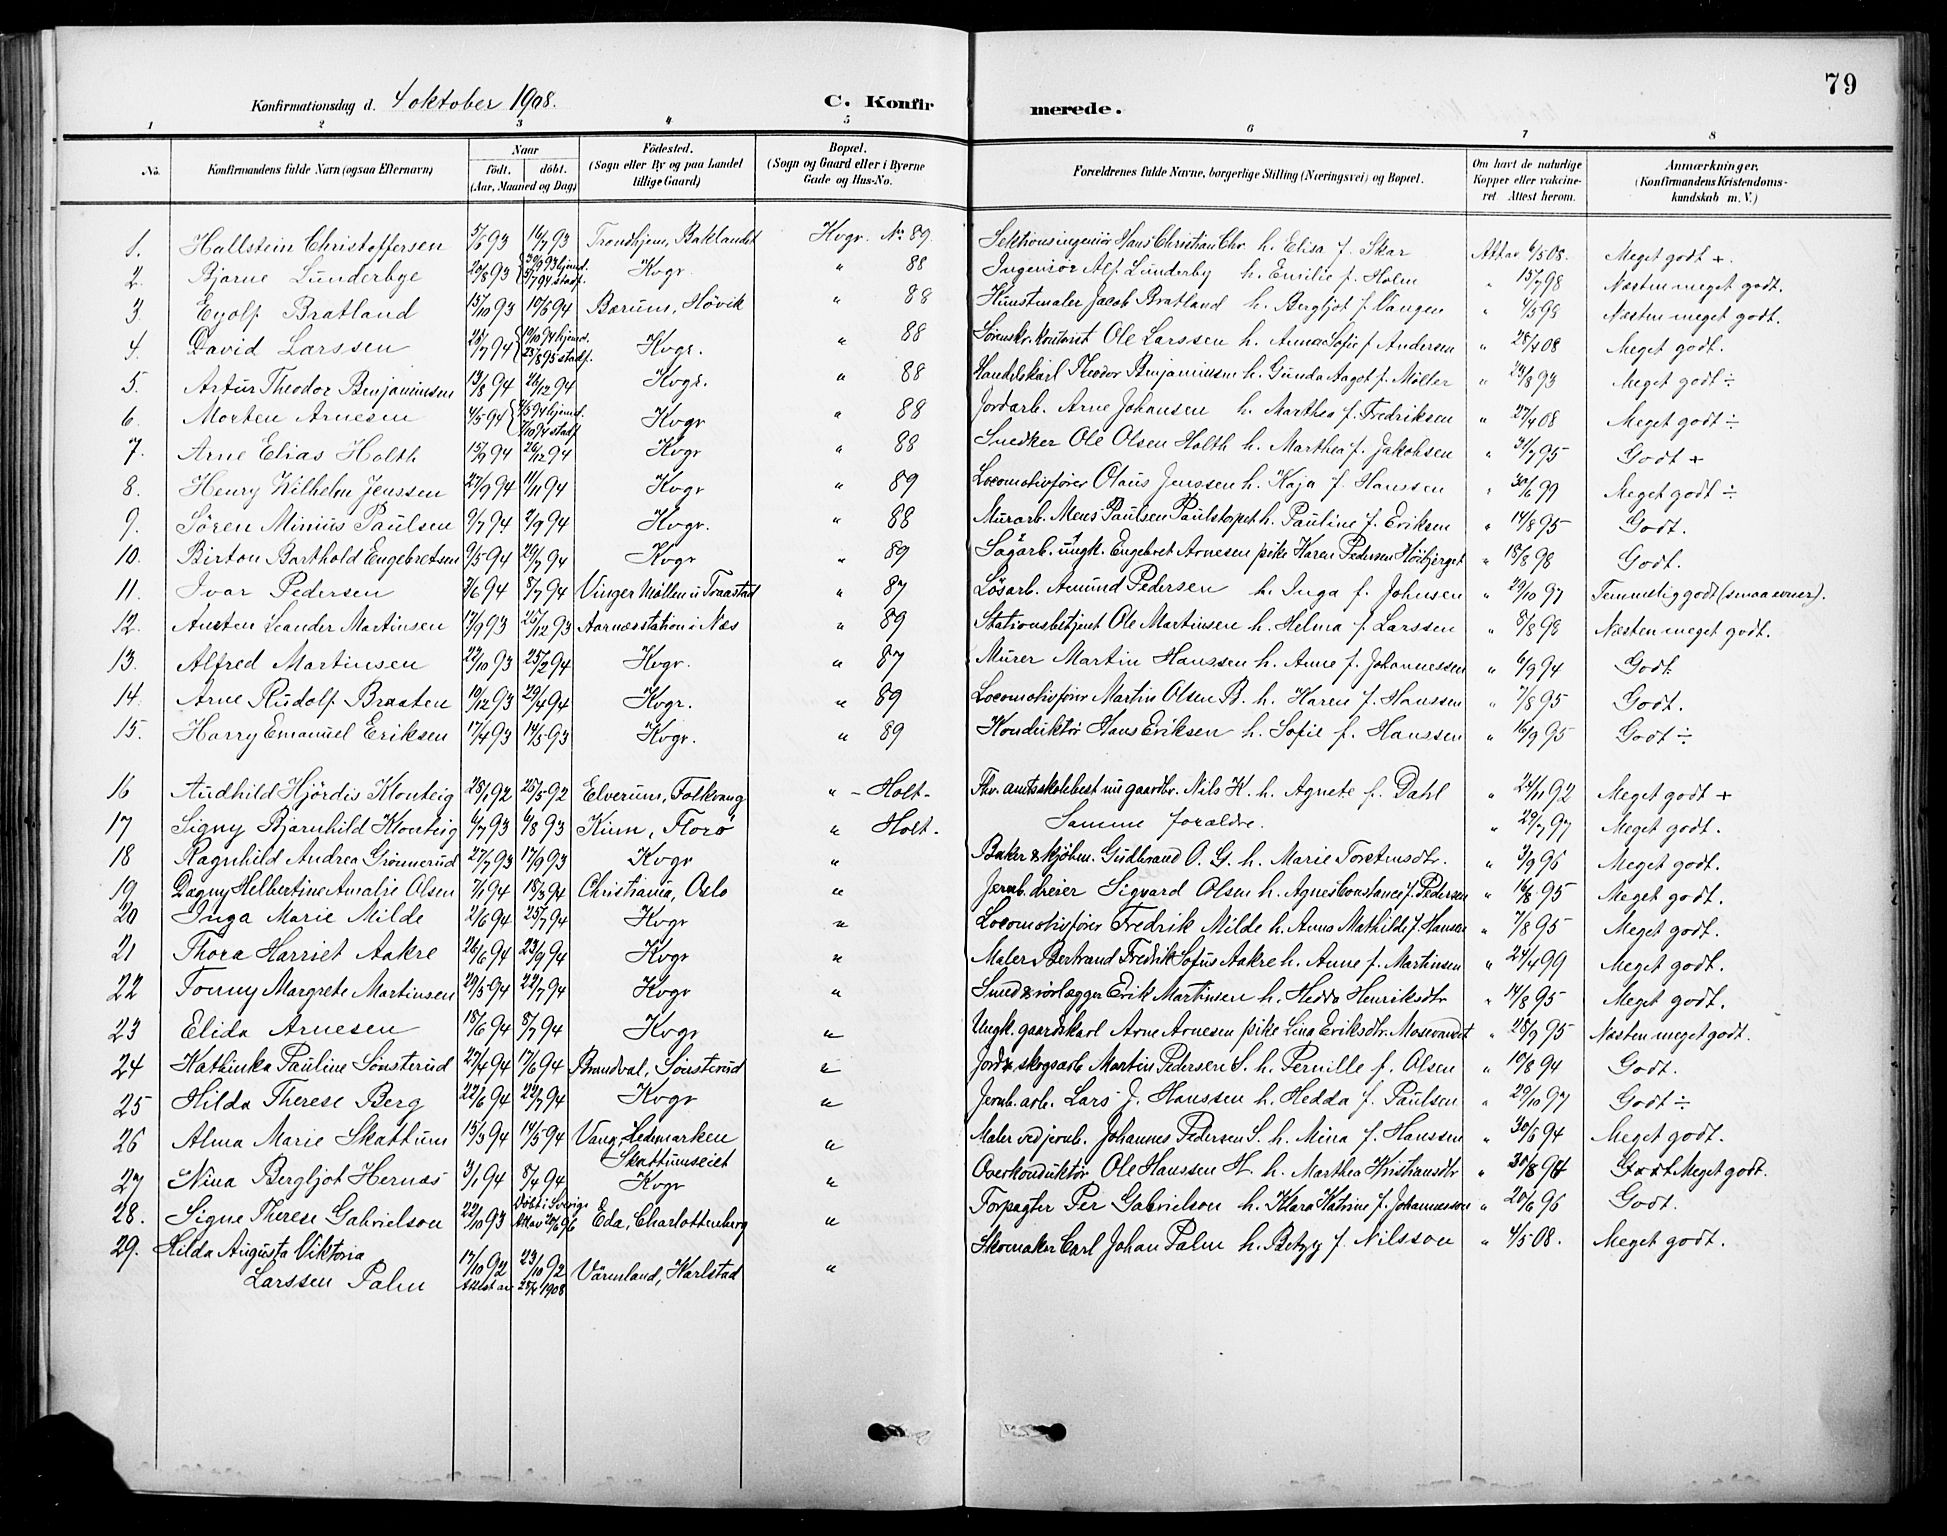 79
Konfirmationsdag d. 4 oktober 1908.
C. Konfirmerede.
1 2 3 4 5 6 7 8
No. Konfirmandens fulde Navn (ogsaa Efternavn) Naar födt. döbt. (Aar, Maaned og Dag) Födested. (Sogn eller By og paa Landet tillige Gaard) Bopæl. (Sogn og Gaard eller i Byerne Gade og Hus-No. Forældrenes fulde Navne, borgerlige Stilling (Næringsvei) og Bopæl. Om havt de naturlige Kopper eller vakcineret Attest herom. Anmærkninger, (Konfirmandens Kristendomskundskab m. V.)
1. Hallstein Christoffersen 5/6 93 16/7 93 Trondhjem, Baklandet Kvgr. No 89. Sektionsingeniör Hans Christian Chr. h. Elisa f. Skar Att av 6/5 08. Meget godt +.
2. Bjarne Lunderbye 20/8 93 30/9 93 hjemd. 5/7 94 stadf. Kvgr. " 88 Ingeniör Alf Lunderby h. Emilie f. Holm " 15/7 98 Næsten meget godt.
3. Eyolf Bratland 15/10 93 10/6 94 Bærum, Hövik " 88 Kunstmaler Jacob Bratland h. Bergljot f. Vangen " 4/5 98 Næsten meget godt.
4. David Larssen 26/7 94 10/10 94 hjemd. 25/8 95 stadf. Kvgr. " 88 Sörenskr. kontorist Ole Larssen h. Anna Sofie f. Andersen " 28/4 08 Meget godt.
5. Artur Theodor Benjaminsen 13/8 94 26/12 94 Kvgr. " 88 Handelskarl Theodor Benjaminsen h. Gunda Aagot f. Möller " 23/8 93 Meget godt ÷
6 Morten Arnesen 4/5 94 4/5 94 hjemd. 7/10 94 stadf. Kvgr " 88 Jordarb. Arne Johansen h. Marthea f. Fredriksen " 27/4 08 Meget godt ÷
7. Arne Elias Holth 15/9 94 26/12 94 Kvgr " 88 Snedker Ole Olsen Holth h. Marthea f. Jakobsen " 31/7 95 Godt +
8. Henry Wilhelm Jenssen 27/9 94 11/11 94 Kvgr " 89 Locomotivförer Olaus Jenssen h. Kaja f. Hanssen " 30/6 99 Meget godt ÷
9. Sören Minius Paulsen 9/7 94 2/9 94 Kvgr. " 88 Murarb. Mens Paulsen Paulstopet h. Pauline f. Eriksen " 14/8 95 Godt.
10. Birton Barthold Engebretsen 9/5 94 29/7 94 Kvgr " 89 Sagarb. ungk. Engebret Arnesen pike Karen Pedersen Höibjerget " 18/6 98 Godt.
11. Ivar Pedersen 2/6 94 8/7 94 Vinger Möllen u Traastad " 87 Lösarb. Amund Pedersen h. Inga f. Johnsen " 29/10 97 Temmelig godt (smaa evner).
12. Austen Leander Martinsen 17/9 93 25/12 93 Aarnæs station i Næs " 89 Stationsbetjent Ole Martinsen h. Helma f. Larssen " 8/8 98 Næsten meget godt.
13. Alfred Martinsen 22/10 93 25/2 94 Kvgr. " 87 Murer Martin Hanssen h. Anne f. Johannessen " 6/9 94 Godt.
14. Arne Rudolf Braaten 10/12 93 29/4 94 Kvgr. " 89 Locomotivförer Martin Olsen B. h. Karen f. Hanssen " 7/8 95 Godt.
15. Harry Emanuel Eriksen 17/4 93 14/5 93 Kvgr. " 89 Konduktör Hans Eriksen h. Sofie f. Hanssen " 16/9 95 Godt ÷
16 Audhild Hjördis Klonteig 28/1 92 25/5 92 Elverum, Folkvang " – Holt – Fhv. amtsskolebest. nu gaardbr. Nils K. h. Agnete f. Dahl " 24/11 92 Meget godt +
17 Signy Bjarnhild Klonteig 6/7 93 6/8 93 Kinn, Florö " Holt – Samme foraldre. " 29/7 97 Meget godt.
18 Ragnhild Andrea Grönnerud 27/7 93 17/9 93 Kvgr " Baker & kjöbm. Gudbrand O. G. h. Marie Torstensdtr. " 3/9 96 Meget godt.
19 Dagny Helbertine Amalie Olsen 7/1 94 18/3 94 Christiania, Oslo " Jernb. dreier Sigvard Olsen h. Agnes Constance f. Pedersen " 16/8 95 Meget godt.
20 Inga Marie Milde 2/6 94 25/7 94 Kvgr " Locomotivförer Fredrik Milde h. Anna Mathilde f. Hansen " 7/8 95 Meget godt.
21 Thora Harriet Aakre 26/6 94 23/9 94 Kvgr " Maler Bertrand Fredrik Sofus Aakre h. Anne f. Martinsen " 24/4 99 Meget godt.
22 Tonny Margrete Martinsen 29/5 94 22/7 94 Kvgr " Smed & rörlægger Erik Martinsen h. Hedda Henriksdtr " 14/8 95 Meget godt.
23 Elida Arnesen 18/6 94 8/7 94 Kvgr " Ungk. gaardskarl Arne Arnesen pike Lina Eriksdtr. Mosevandet " 28/9 95 Næsten meget godt.
24 Kathinka Pauline Sönsterud 27/4 94 17/6 94 Brandval, Sönsterud " Jord & skogsarb Martin Pedersen S. h. Pernille f. Olsen " 10/8 94 Godt.
25 Hilda Therese Berg 22/6 94 22/7 94 Kvgr " Jernb. arb. Lars J. Hanssen h. Hedda f. Paulsen " 29/10 97 Godt ÷
26 Alma Marie Skattum 15/3 94 14/5 94 Vang, Hedemarken Skattumseiet " Maler ved jernb. Johannes Pedersen S. h. Mina f. Hanssen " 30/6 94 Meget godt.
27 Nina Bergljot Hernæs 3/1 94 8/4 94 Kvgr " Overkonduktör Ole Hanssen H. h. Marthea Kristiansdtr " 30/8 94 Godt Meget godt.
28. Signe Therese Gabrielson 22/10 93 Döbt i Sverige Att av 20/6 96 Eda, Charlottenberg " Forpagter Per Gabrielson h. Klara Katrine f. Johannesson " 20/6 96 Godt.
29. Hilda Augusta Viktoria Larssen Palm 17/10 92 23/10 92 Attest av 28/4 1908 Värmland, Karlstad " Skomaker Carl Johan Palm h. Betzy f. Nilsson " 4/5 08. Meget godt.